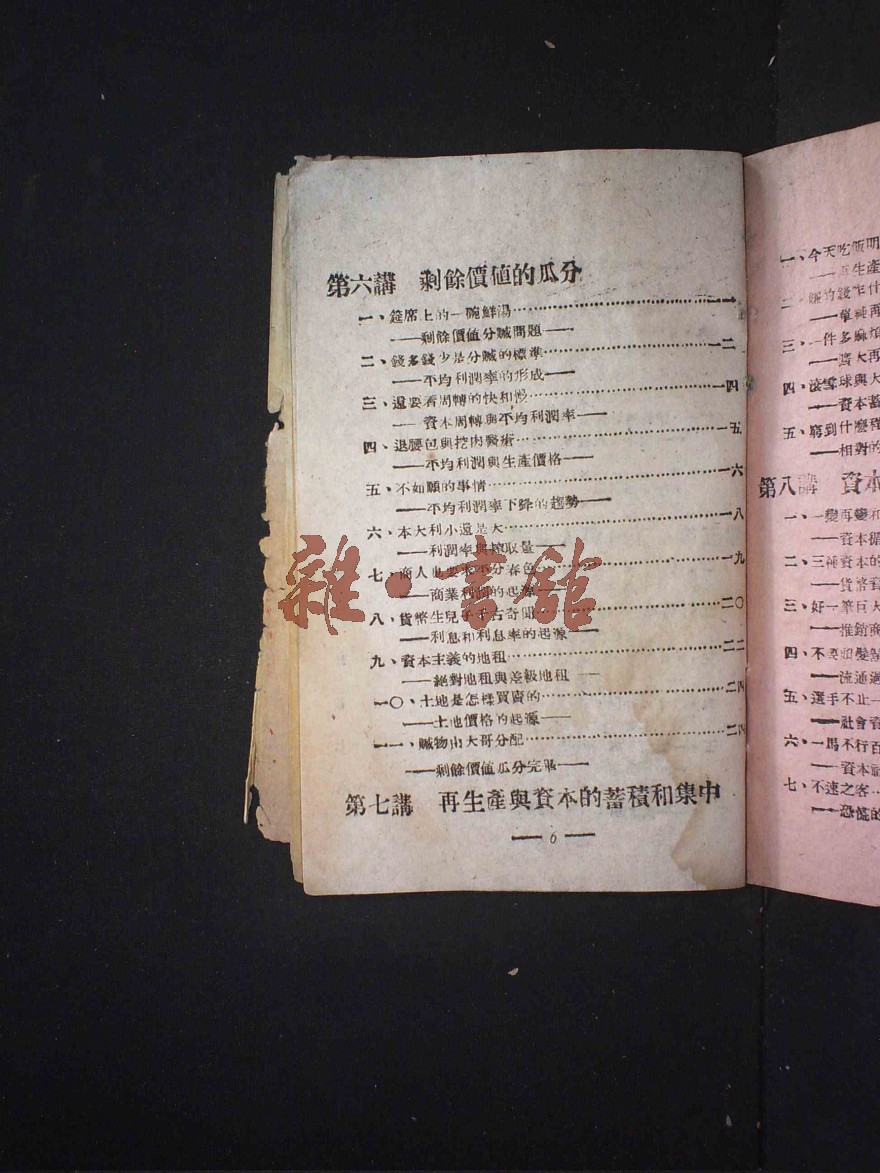 第六講　剩餘價值的瓜分
一、筵席上的一碗鮮湯……一一
——剩餘價值分贓問題——
二、錢多錢少是分贓的標準……一二
——平均利潤率的形成——
三、還要看周轉的快和慢……一四
——資本周轉與平均利潤率——
四、退腰包與挖肉醫術……一五
——平均利潤與生產價格——
五、不如願的事情……一六
——平均利潤率下降的趨勢——
六、本大利小還是大……一八
——利潤率與榨取量——
七、商人也要來平分春色……一九
——商業利潤的起源——
八、貨幣生兒子千古奇聞……二〇
——利息和利息率的起源——
九、資本主義的地租……二二
——絕對地租與差級地租——
一〇、土地是怎樣買賣的……二四
——土地價格的起源——
一一、贓物由大哥分配……二四
——剩餘價值瓜分完畢——
第七講　再生產與資本的蓄積和集中
— 6 —
雜·書館
一、今天吃飯明
——再生產
二、賺的錢乍什
——單純再
三、一件多麻煩
——擴大再
四、滾雪球與大
——資本蓄
五、窮到什麽程
——相對的
第八講　資本
一、一變再變和
——資本循
二、三種資本的
——貨幣資
三、好一筆巨大
——推銷商
四、不要
——流通過
五、選手不止一
——社會資
六、一馬不行百
——資本
七、不速之客…
——恐慌的